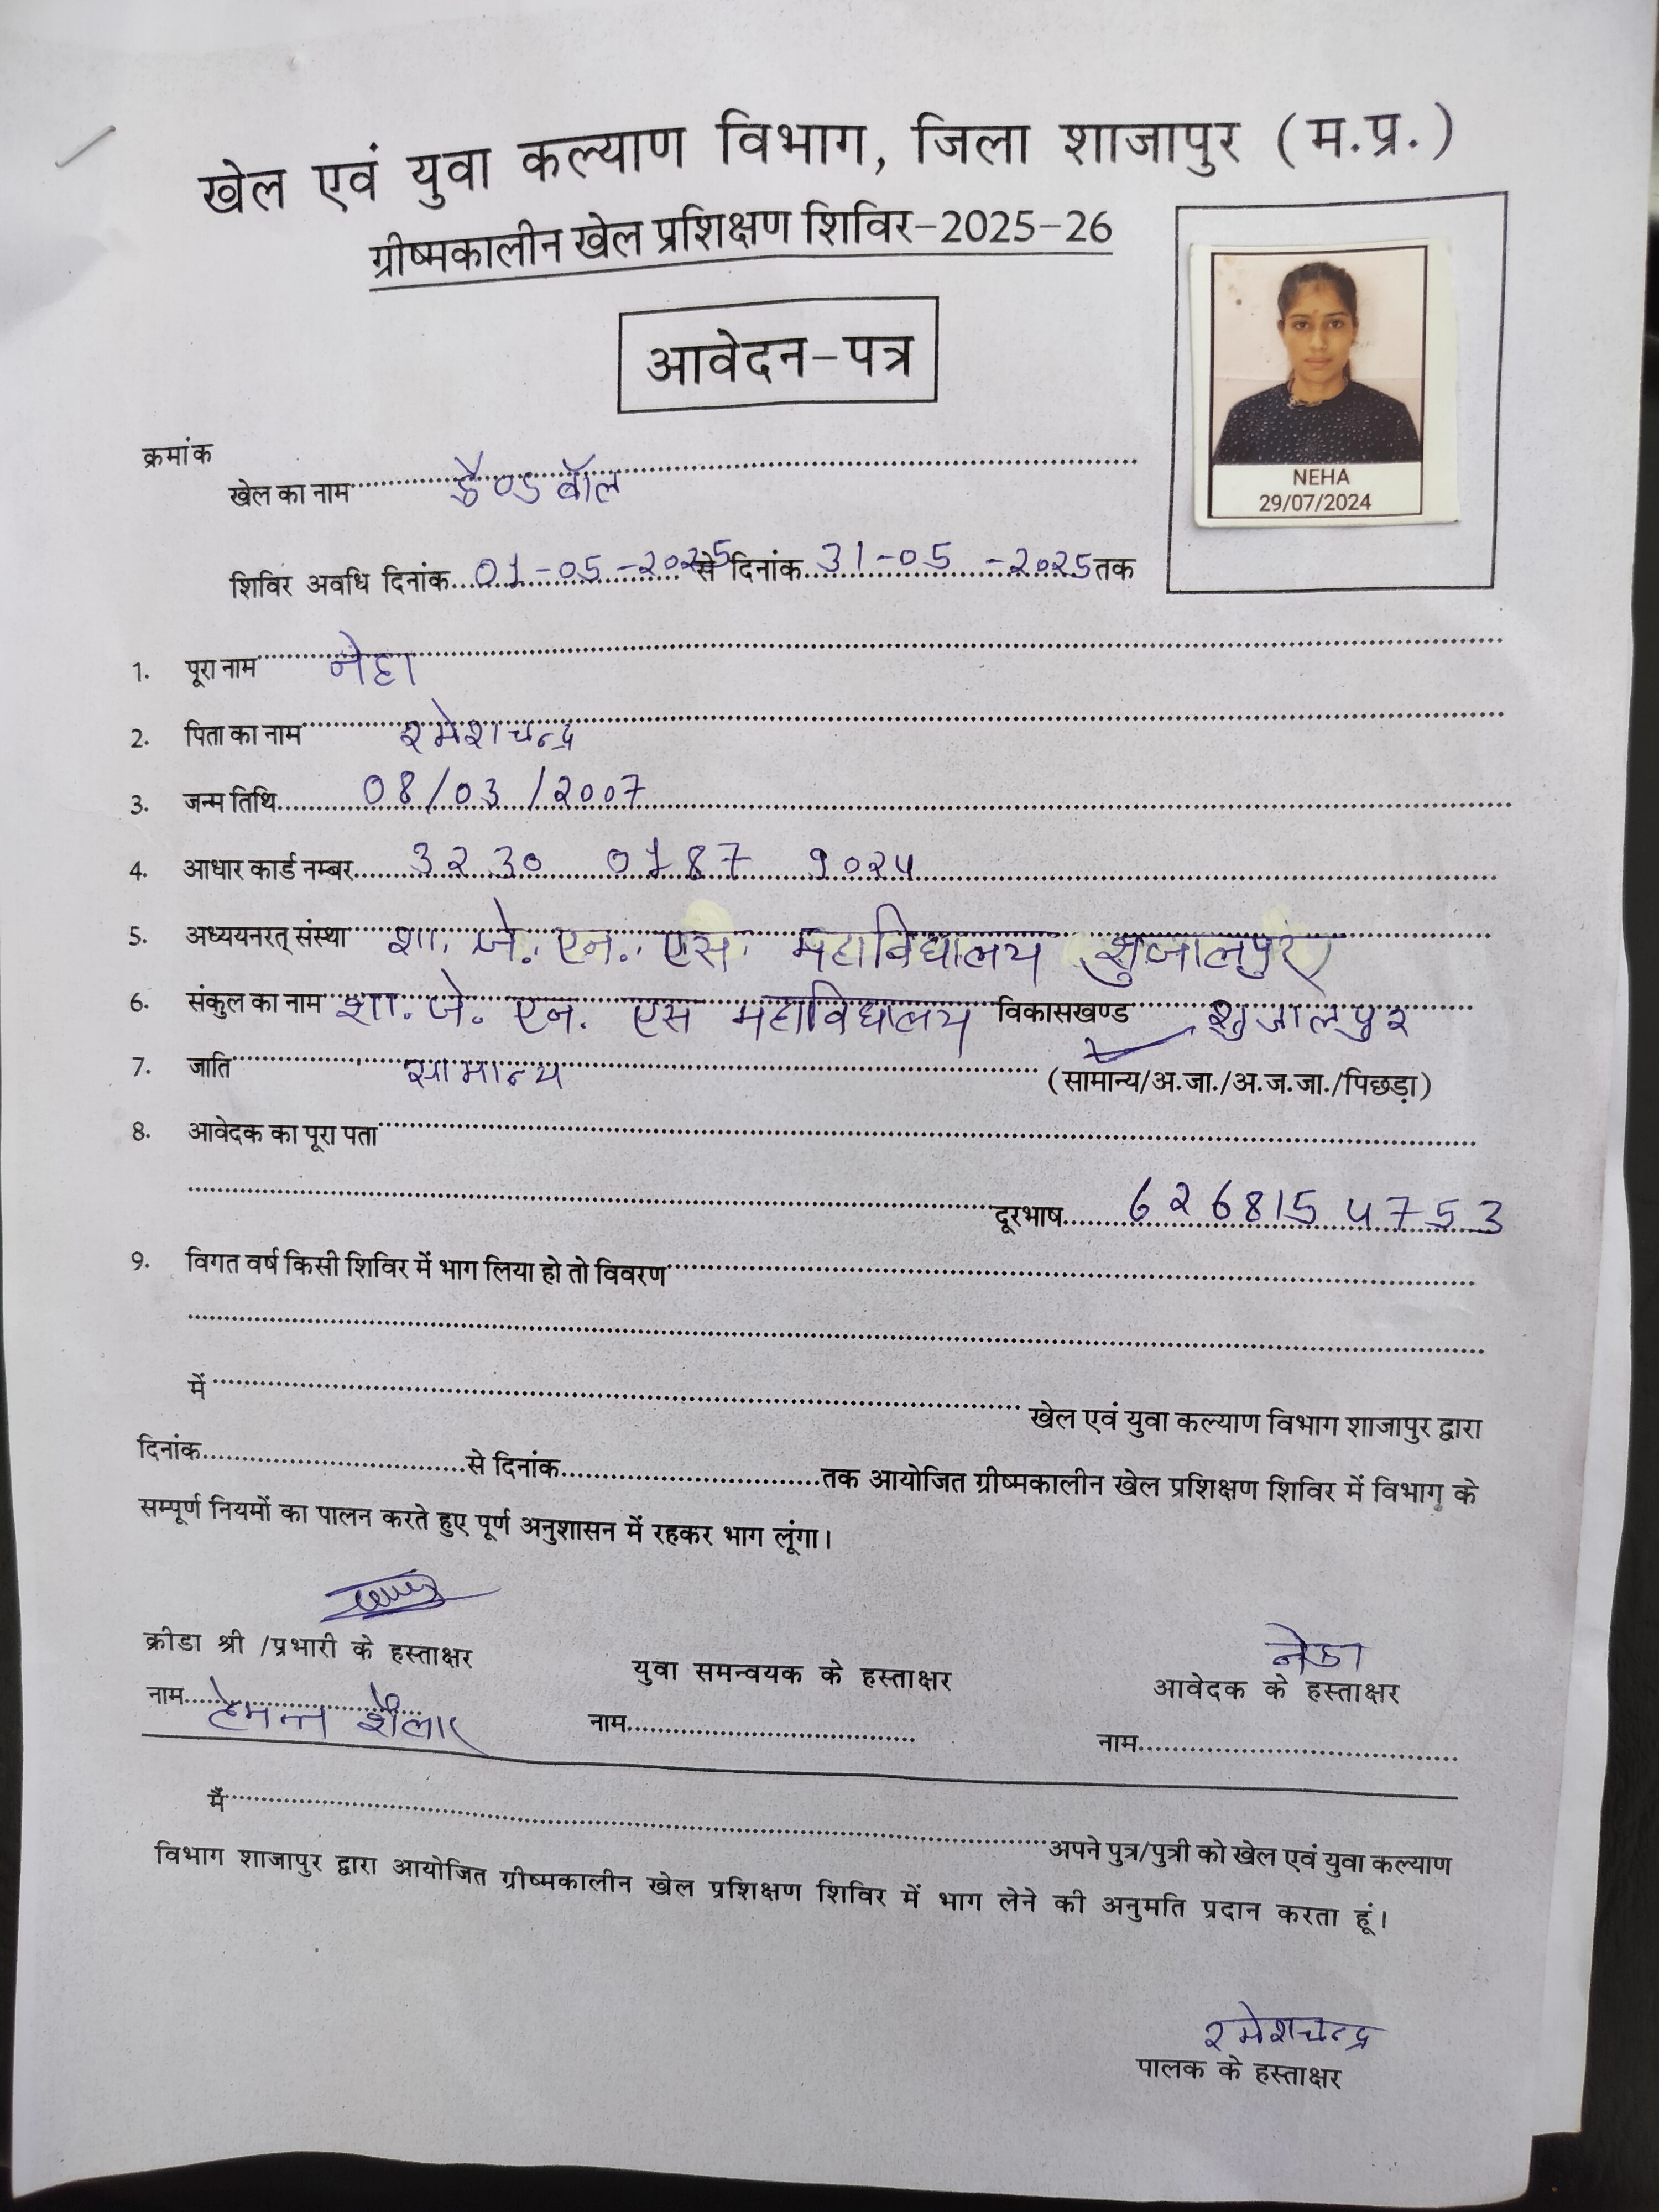 खेल एवं युवा कल्याण विभाग, जिला शाजापुर (म.प्र.)
ग्रीष्मकालीन खेल प्रशिक्षण शिविर-2025-26
आवेदन-पत्र
NEHA
29/07/2024
क्रमांक
खेल का नाम हैण्डबॉल
शिविर अवधि दिनांक 01-05-2025 से दिनांक 31-05-2025 तक
1. पूरा नाम नेहा
2. पिता का नाम रमेशचन्द्र
3. जन्म तिथि 08/03/2007
4. आधार कार्ड नम्बर 3230 0187 9024
5. अध्ययनरत् संस्था शा. जे. एन. एस. महाविद्यालय शुजालपुर
6. संकुल का नाम शा. जे. एन. एस महाविद्यालय विकासखण्ड शुजालपुर
7. जाति सामान्य (सामान्य/अ.जा./अ.ज.जा./पिछड़ा)
8. आवेदक का पूरा पता
दूरभाष 6268154753
9. विगत वर्ष किसी शिविर में भाग लिया हो तो विवरण
में खेल एवं युवा कल्याण विभाग शाजापुर द्वारा
दिनांक से दिनांक तक आयोजित ग्रीष्मकालीन खेल प्रशिक्षण शिविर में विभाग के
सम्पूर्ण नियमों का पालन करते हुए पूर्ण अनुशासन में रहकर भाग लूंगा।
नेहा
क्रीडा श्री /प्रभारी के हस्ताक्षर युवा समन्वयक के हस्ताक्षर आवेदक के हस्ताक्षर
नाम हेमन्त शैलार नाम नाम
मैं अपने पुत्र/पुत्री को खेल एवं युवा कल्याण
विभाग शाजापुर द्वारा आयोजित ग्रीष्मकालीन खेल प्रशिक्षण शिविर में भाग लेने की अनुमति प्रदान करता हूं।
रमेशचन्द्र
पालक के हस्ताक्षर